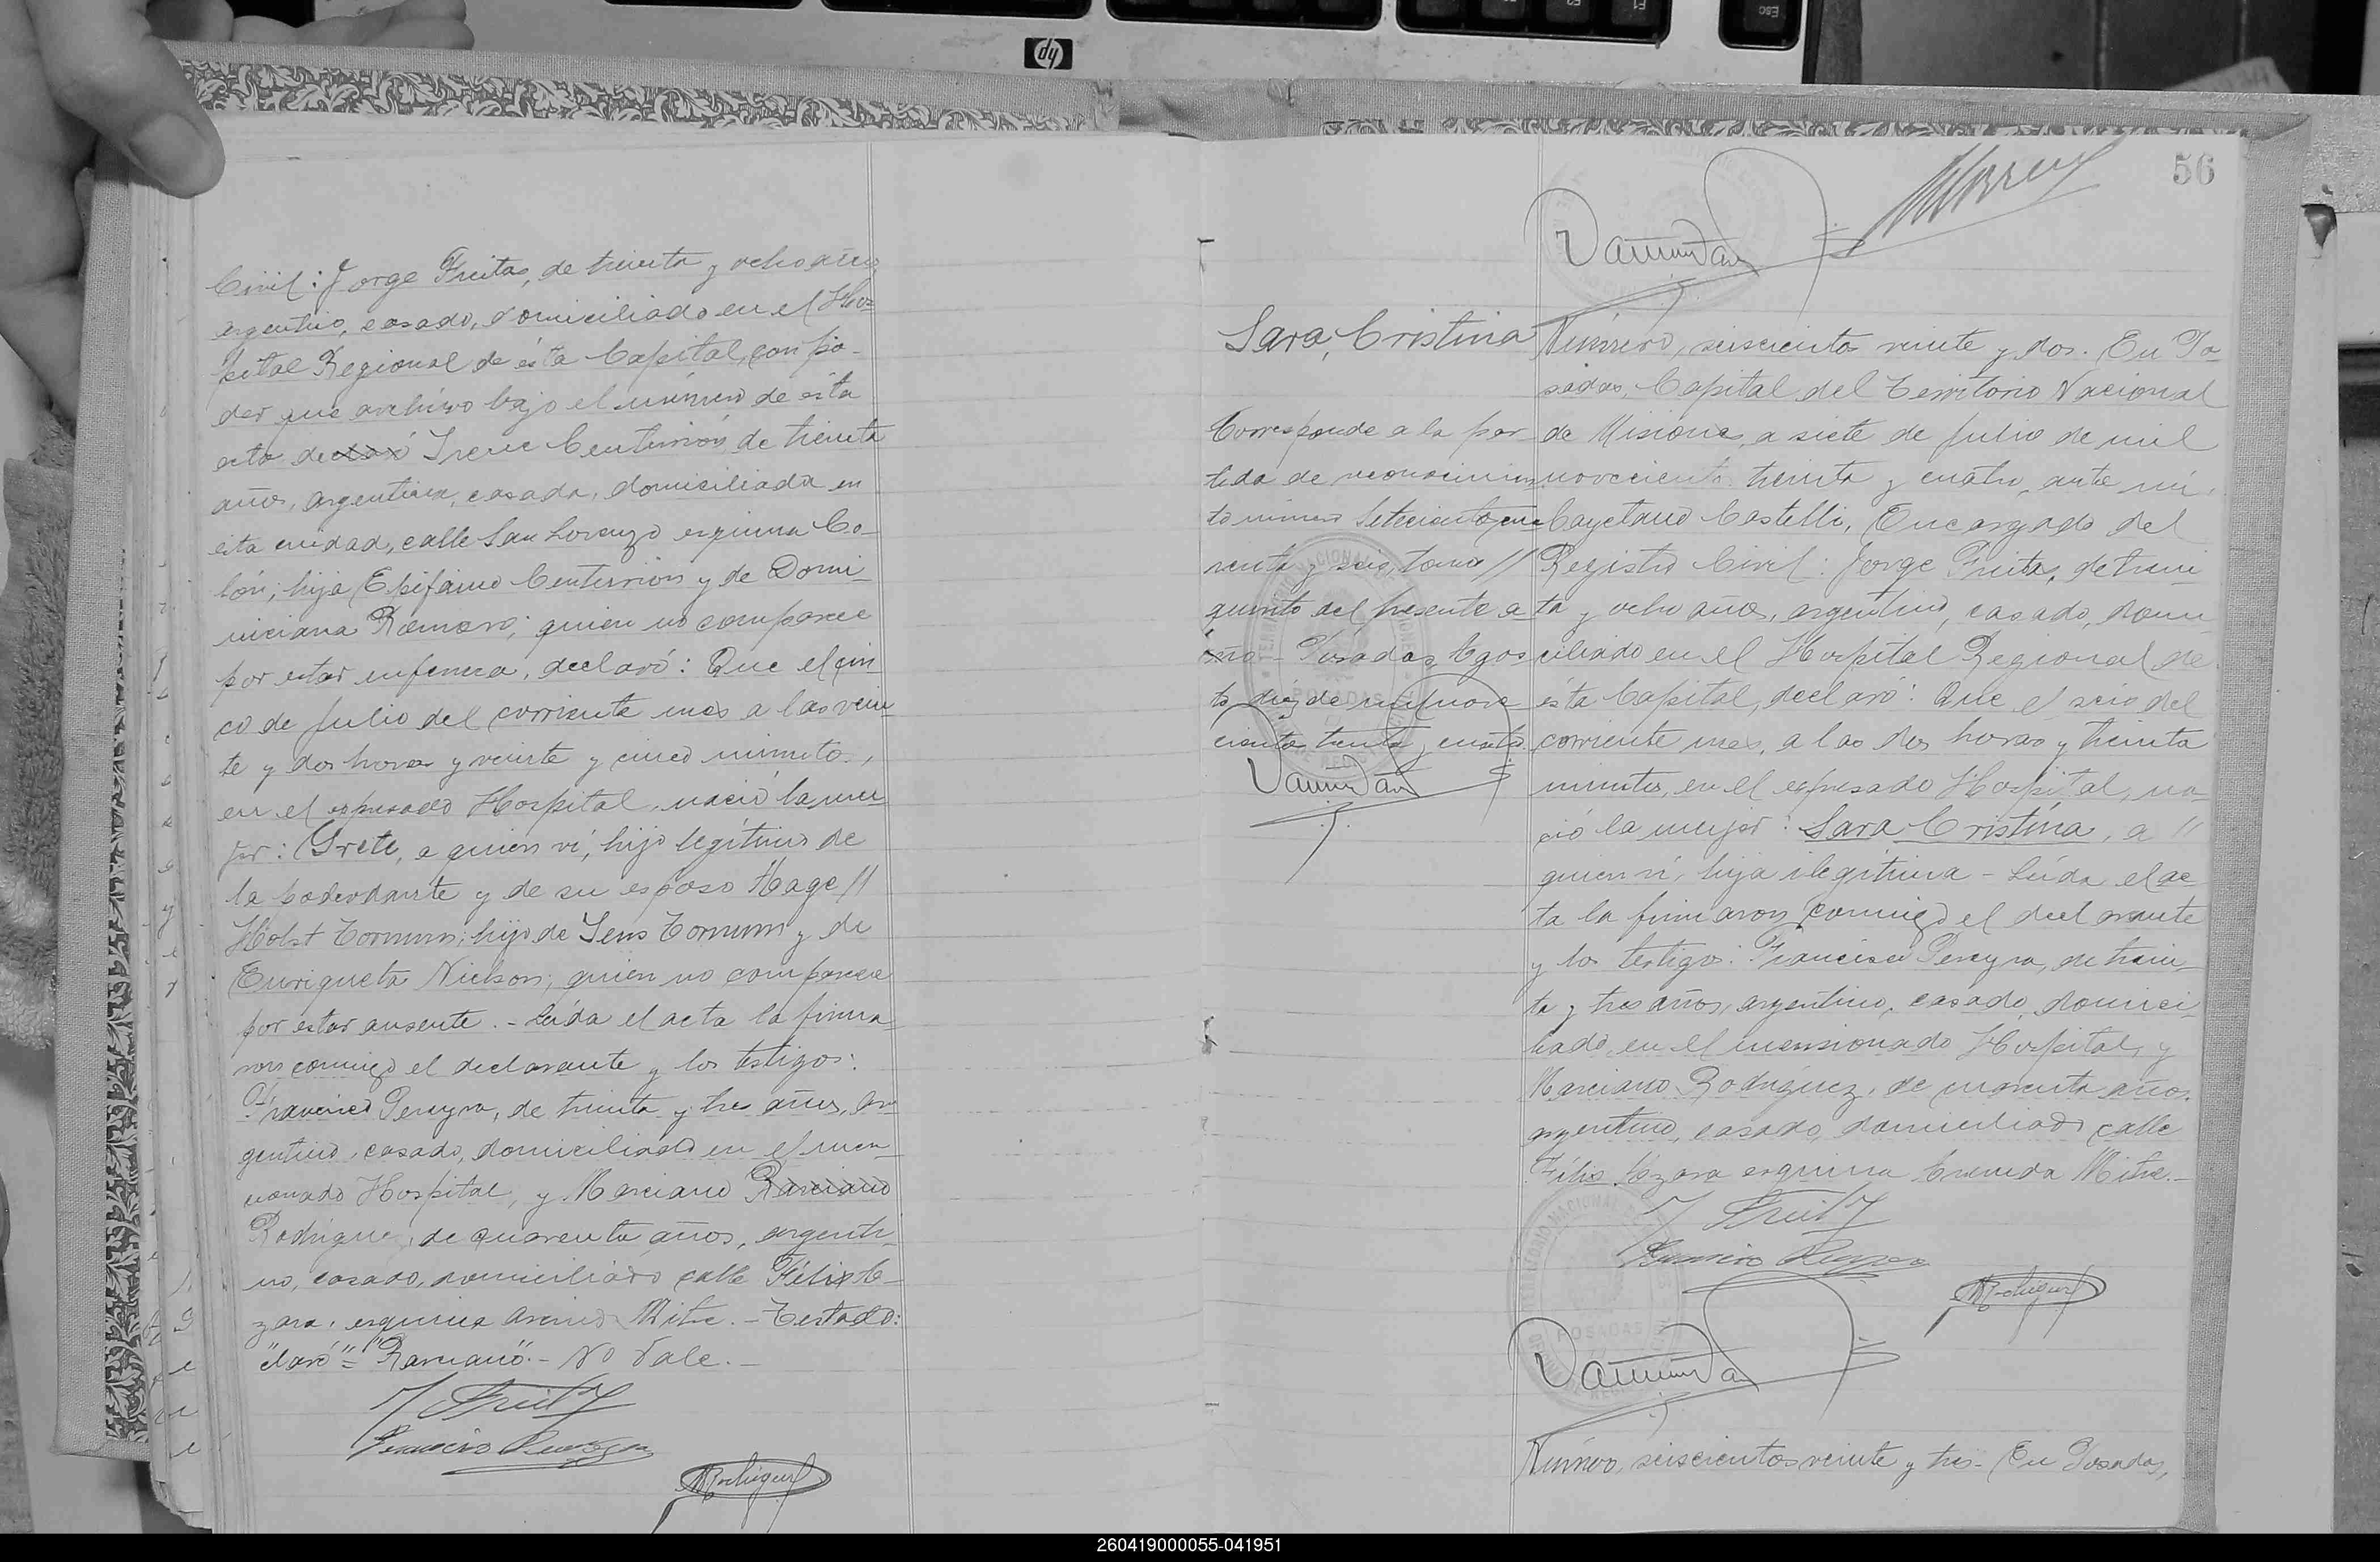 Civil: Jorge Freitas, de treinta y ocho años
argentino, casado, domiciliado en el Hos=
pital Regional de ésta Capital, con po-
der que archivo bajo el número de ésta
acta declaró Irene Centurión, de treinta
años, argentina, casada, domiciliada en
esta ciudad, calle San Lorenzo esquina Co-
lón; hija Epifanio Centurrión y de Domi-
niciana Romero; quien no comparece
por estar enferma, declaró: Que el cin-
co de Julio del corriente mes a las vein-
te y dos horas y veinte y cinco minutos,
en el expresado Hospital, nació la mu-
jer: Grete, a quien vi, hijo legítimo de
la poderdante y de su esposo Aage //
Holst Tornum; hijo de Jens Tornum y de
Enriqueta Nielson; quien no comparece
por estar ausente. - Leída el acta la firma-
ron conmigo el declarante y los testigos:
Francisco Pereyra, de treinta y tres años, ar-
gentino, casado, domiciliado en el men-
cionado Hospital, y Marciano Rarciano
Rodriguez, de cuarenta años, argenti-
no, casado, domiciliado calle Félix A-
zara, esquina Avenida Mitre. - Testado:
"claró" = "Rarciano". - No Vale. -
J Freitas
Francisco Pereyra
MRodriguez
56
Sara, Cristina
Corresponde a la par-
tida de reconocimien-
to número Setecientos cua-
renta y seis, tomo //
quinto del presente a-
ño - Posadas, Agos-
to diez de mil nove-
cientos treinta y cuatro
Número, seiscientos veinte y dos. En Po-
sadas, Capital del Territorio Nacional
de Misiones, a siete de Julio de mil
novecientos treinta y cuatro, ante mí,
Cayetano Castelli, Encargado del
Registro Civil: Jorge Freitas, de trein-
ta y ocho años, argentino, casado, domi-
ciliado en el Hospital Regional de
ésta Capital, declaró: Que el seis del
corriente mes, a las dos horas y treinta
minutos, en el expresado Hospital, na-
ció la mujer: Sara Cristina, a //
quien vi, hija ilegítima - Leída el ac-
ta la firmaron conmigo el declarante
y los testigos: Francisco Pereyra, de trein-
ta y tres años, argentino, casado, domici-
liado, en el mensionado Hospital, y
Marciano Rodríguez, de cuarenta años,
argentino, casado, domiciliado calle
Félix Azara esquina Avenida Mitre. -
J Freitas
Francisco Pereyra
MRodriguez
POSADAS
Número, seiscientos veinte y tres - En Posadas,
260419000055-041951